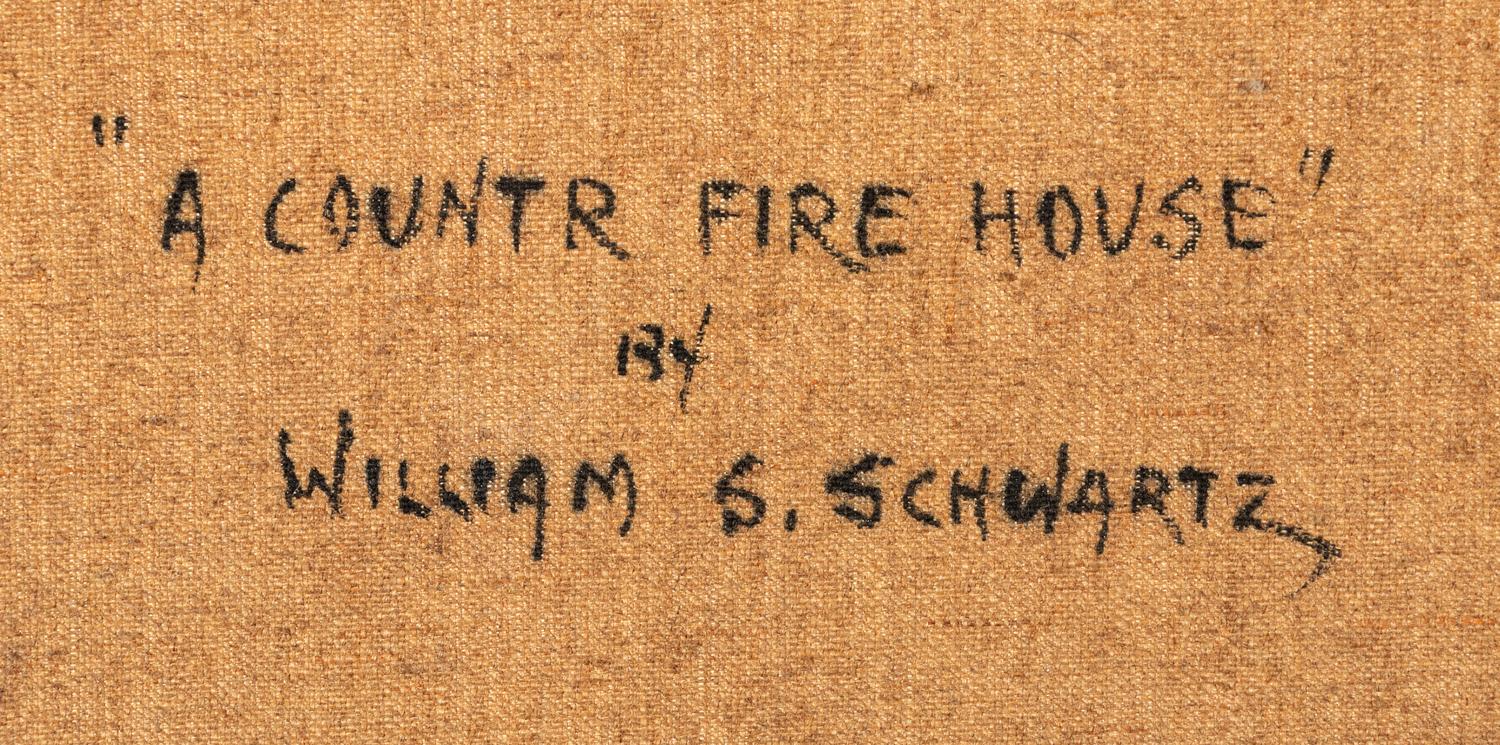 "A COUNTR FIRE HOUSE"
BY
WILLIAM S. SCHWARTZ